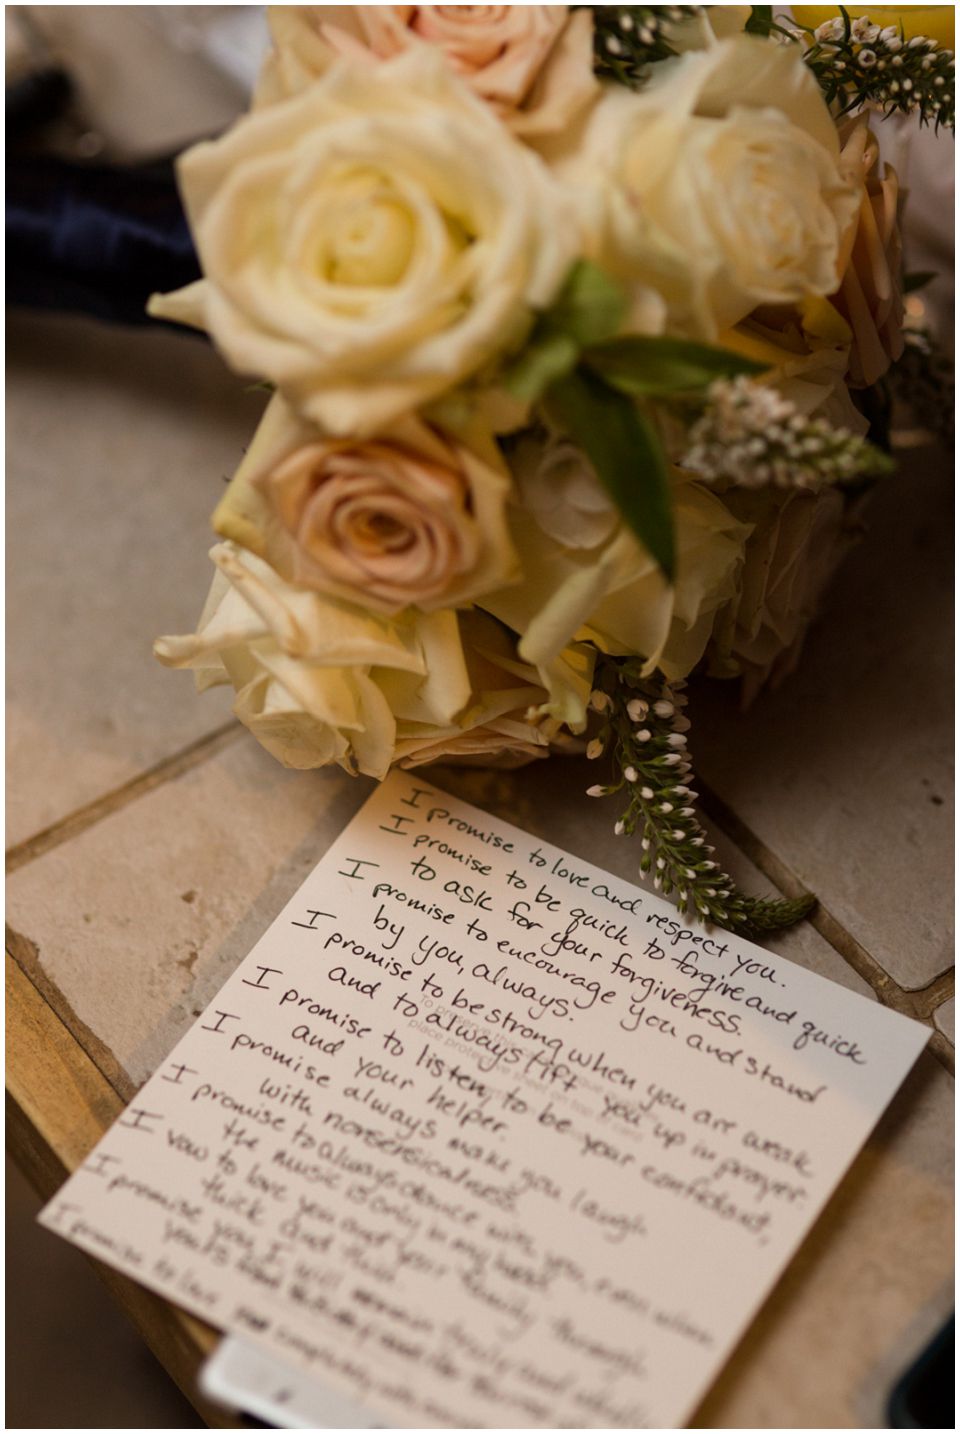 I promise to love and respect you.
I promise to be quick to forgive and quick
to ask for your forgiveness.
I promise to encourage you and stand
by you, always.
I promise to be strong when you are weak
and to always lift you up in prayer.
I promise to listen, to be your confidant,
and your helper.
I promise always make you laugh
with nonsensicalness.
I promise to always dance with you, even when
the music is only in my head.
I vow to love you and your family through
thick and thin.
I promise you I will remain truly and wholly
yours
I promise to love you completely,
To preserve this
place protective sheet on top of card